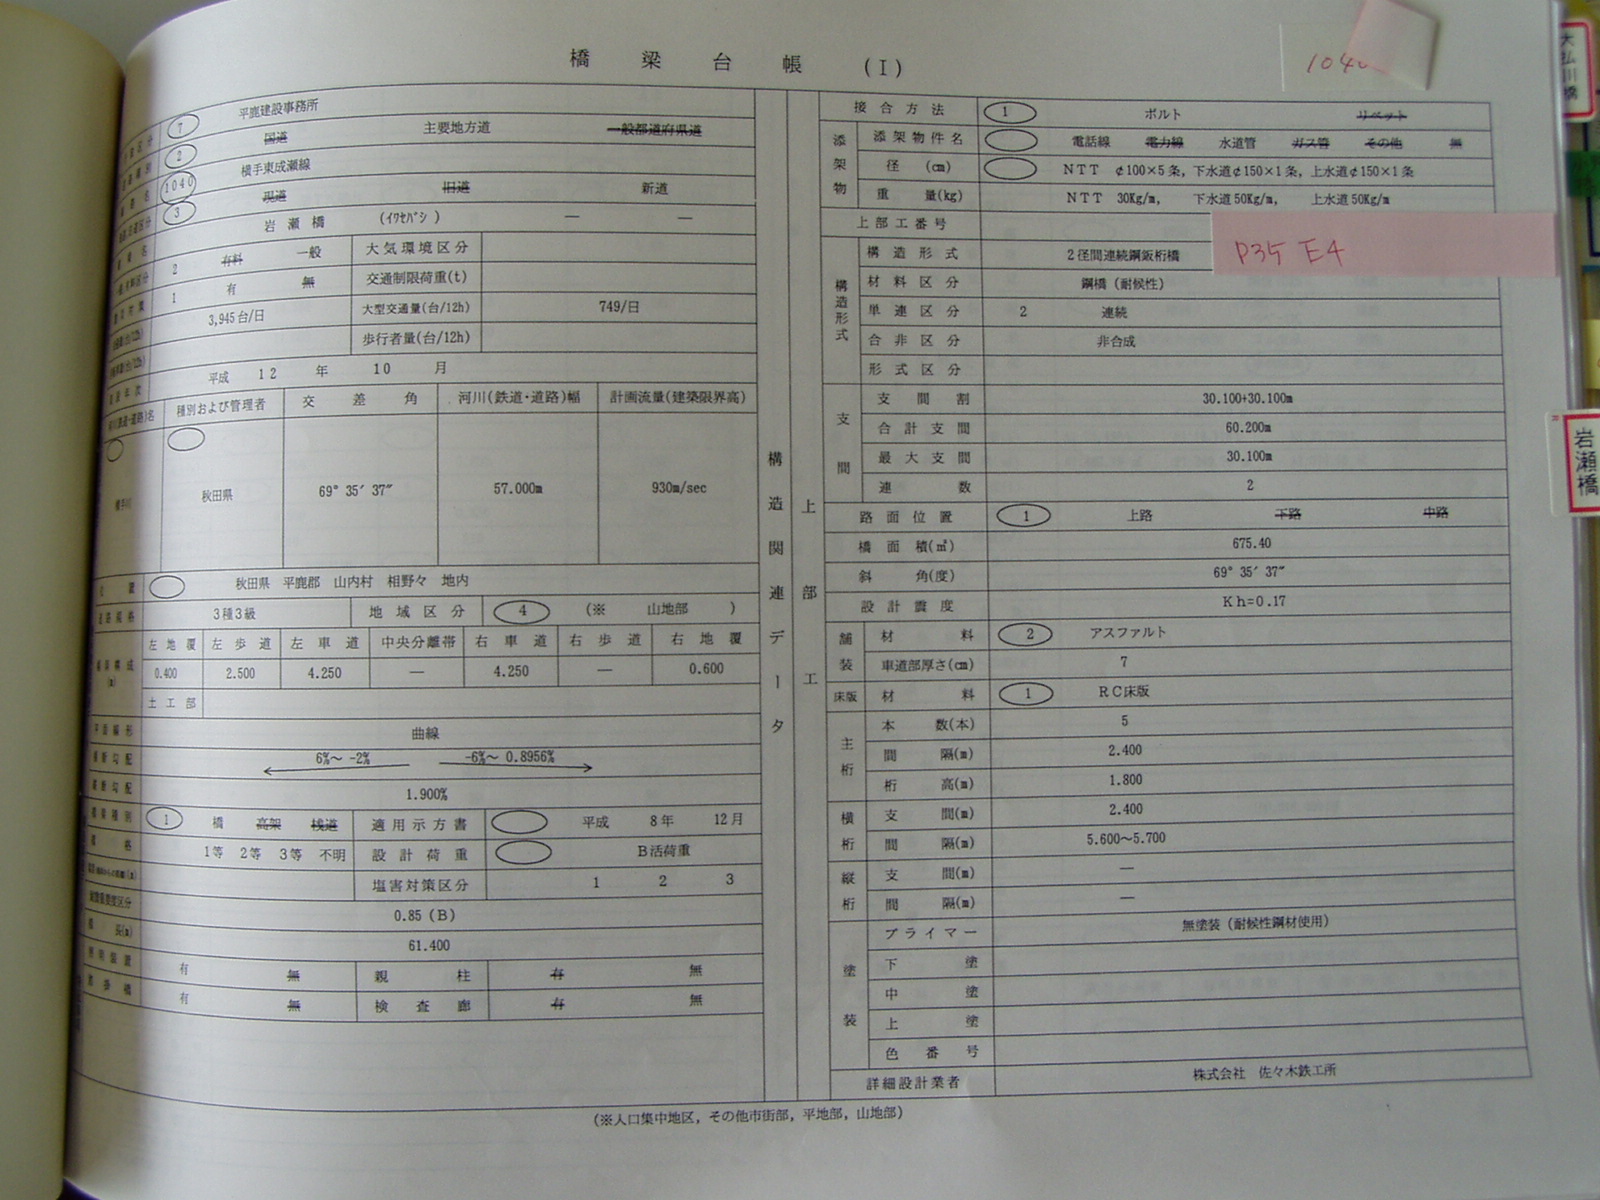 橋梁台帳(I)
1040
7 平鹿建設事務所
国道 主要地方道 一般都道府県道
2
横手東成瀬線
1040
現道 旧道 新道
3
岩瀬橋 (ｲﾜｾﾊﾞｼ) — —
2 有料 一般 大気環境区分
1 有 無 交通制限荷重(t)
3,945台/日 大型交通量(台/12h) 749/日
歩行者量(台/12h)
平成 12 年 10 月
種別および管理者 交差角 河川(鉄道・道路)幅 計画流量(建築限界高)
秋田県 69° 35′ 37″ 57.000m 930m/sec
秋田県 平鹿郡 山内村 相野々 地内
3種3級 地域区分 4 (※ 山地部 )
左地覆 左歩道 左車道 中央分離帯 右車道 右歩道 右地覆
0.400 2.500 4.250 — 4.250 — 0.600
土工部
平面線形 曲線
6%～ -2% -6%～ 0.8956%
1.900%
1 橋 高架 桟道 適用示方書 平成 8年 12月
1等 2等 3等 不明 設計荷重 B活荷重
塩害対策区分 1 2 3
0.85 (B)
橋長(m) 61.400
有 無 親柱 有 無
有 無 検査廊 有 無
構造関連データ
上部工
接合方法 1 ボルト リベット
添架物 添架物件名 電話線 電力線 水道管 ガス管 その他 無
径(cm) NTT ¢100×5条, 下水道¢150×1条, 上水道¢150×1条
重量(kg) NTT 30Kg/m, 下水道50Kg/m, 上水道50Kg/m
上部工番号
P35 E4
構造形式 構造形式 2径間連続鋼鈑桁橋
材料区分 鋼橋(耐候性)
単連区分 2 連続
合非区分 非合成
形式区分
支間 支間割 30.100+30.100m
合計支間 60.200m
最大支間 30.100m
連数 2
路面位置 1 上路 下路 中路
橋面積(㎡) 675.40
斜角(度) 69° 35′ 37″
設計震度 Kh=0.17
舗装 材料 2 アスファルト
車道部厚さ(cm) 7
床版 材料 1 RC床版
主桁 本数(本) 5
間隔(m) 2.400
桁高(m) 1.800
横桁 支間(m) 2.400
間隔(m) 5.600～5.700
縦桁 支間(m) —
間隔(m) —
塗装 プライマー 無塗装(耐候性鋼材使用)
下塗
中塗
上塗
色番号
詳細設計業者 株式会社 佐々木鉄工所
(※人口集中地区, その他市街部, 平地部, 山地部)
大払川橋
岩瀬橋